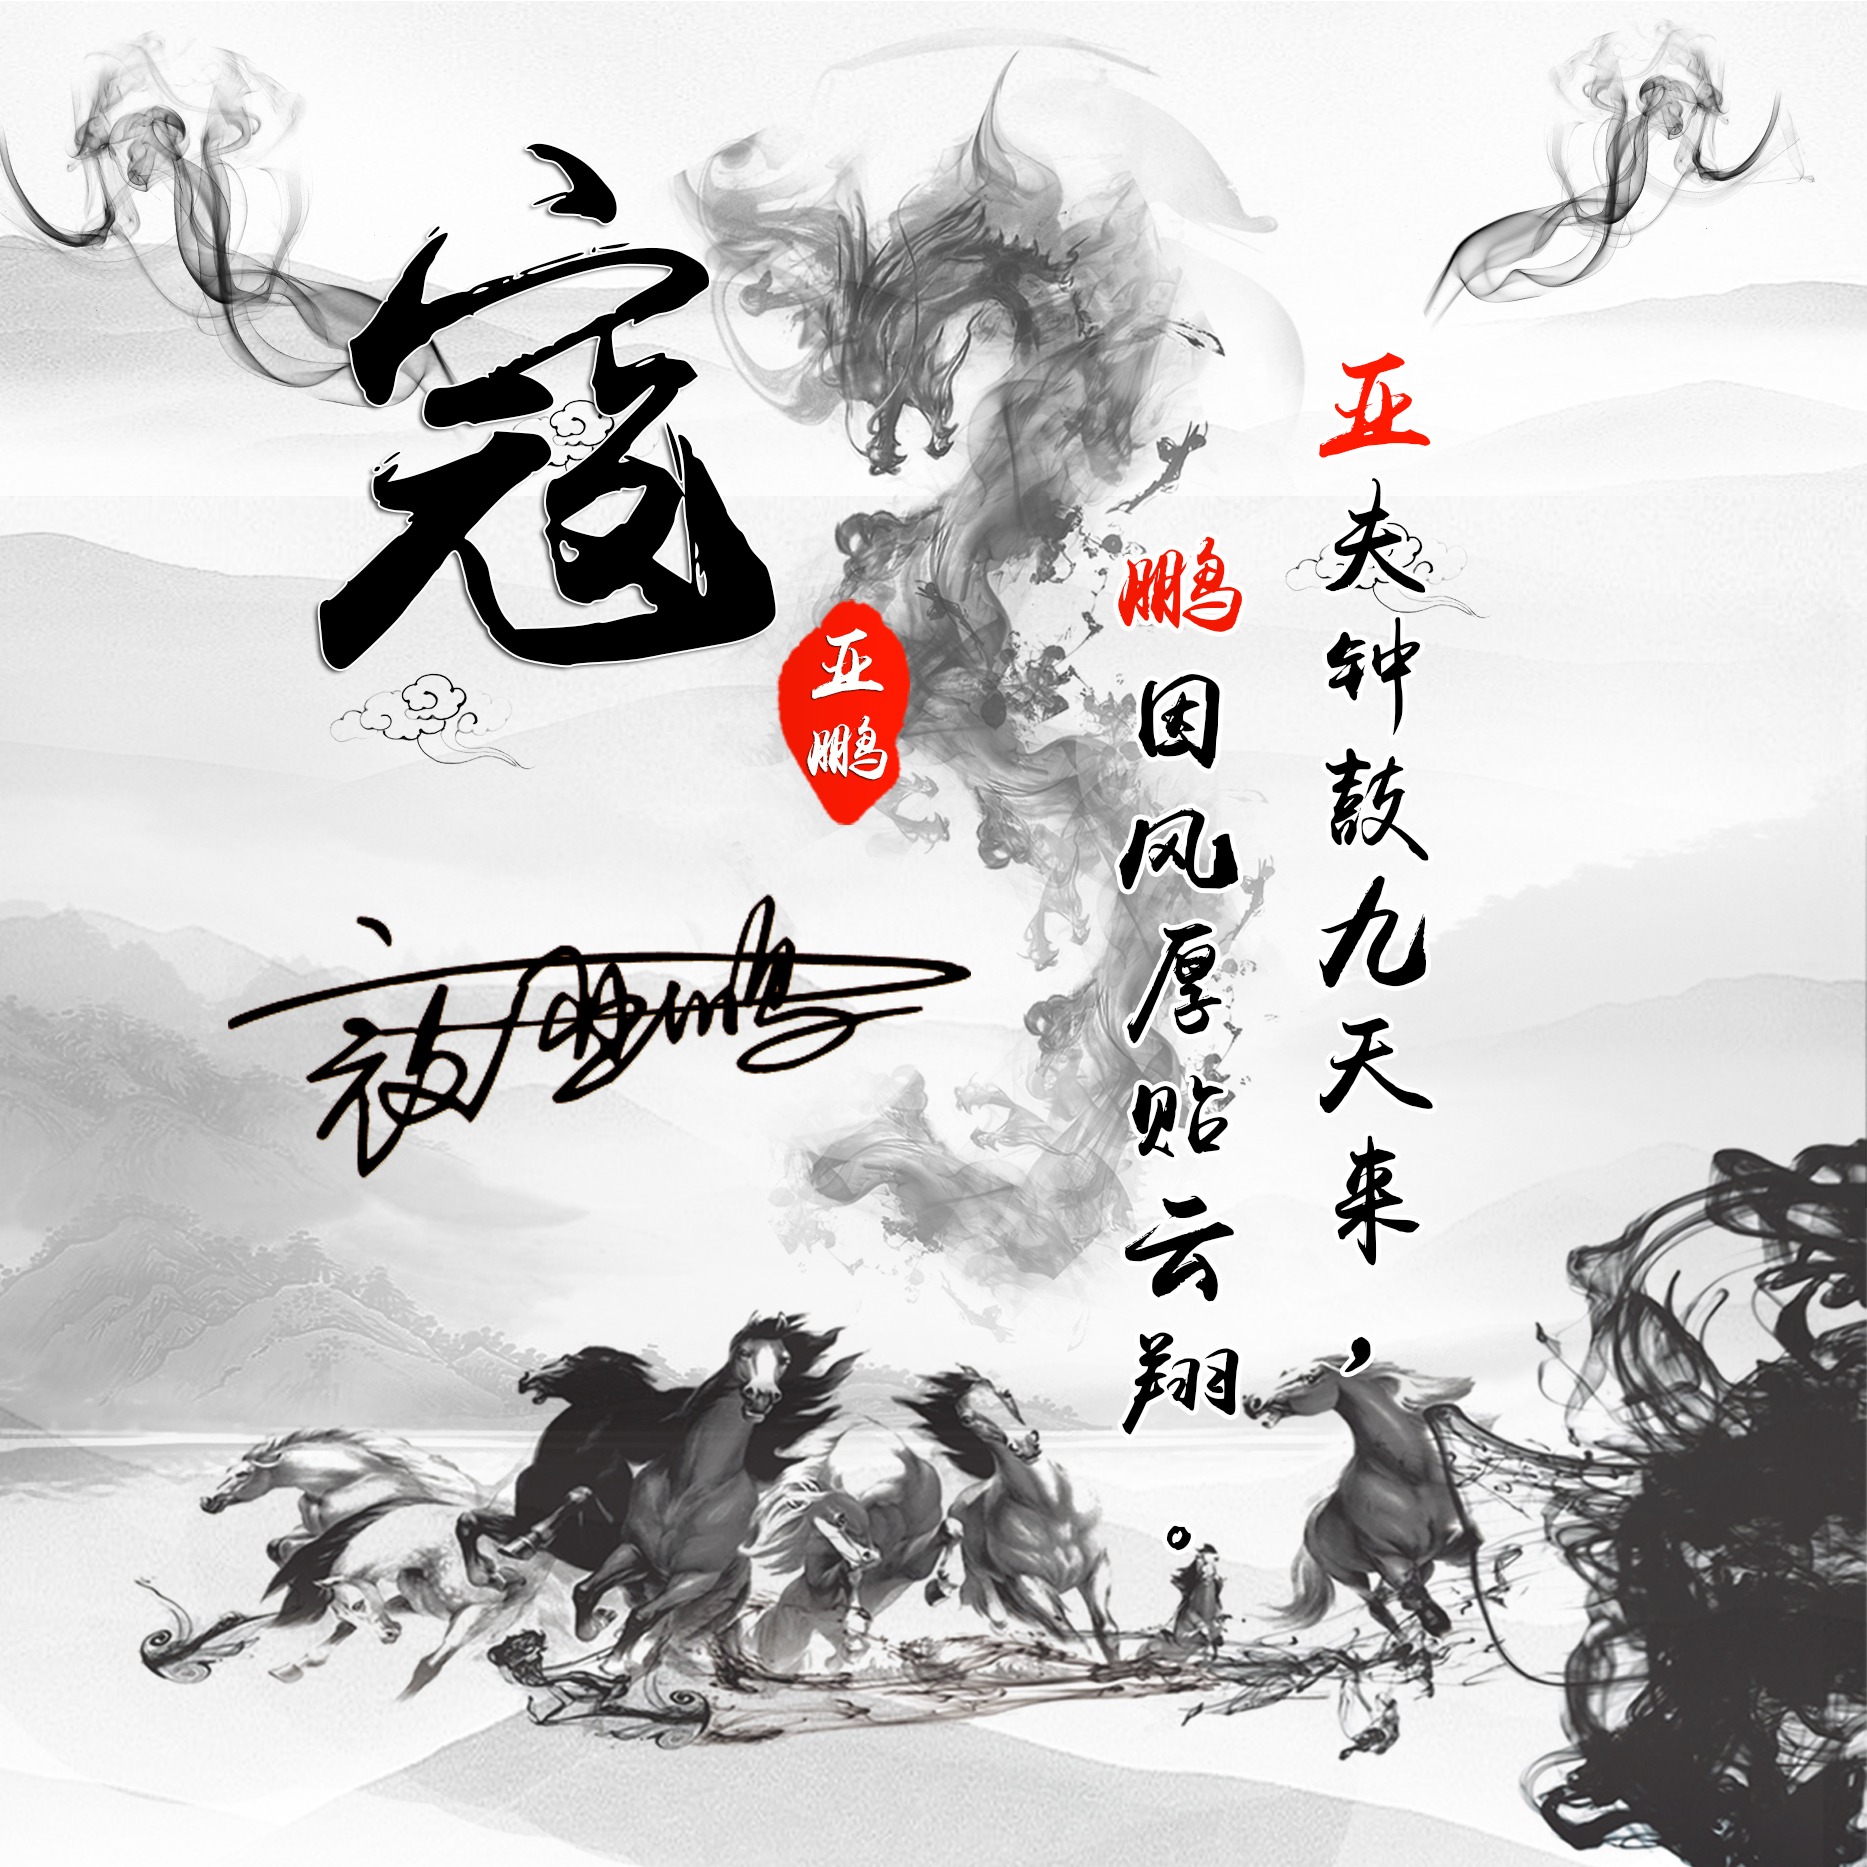 寇
亚鹏
亚夫钟鼓九天来，
鹏因风厚贴云翔。
寇亚鹏